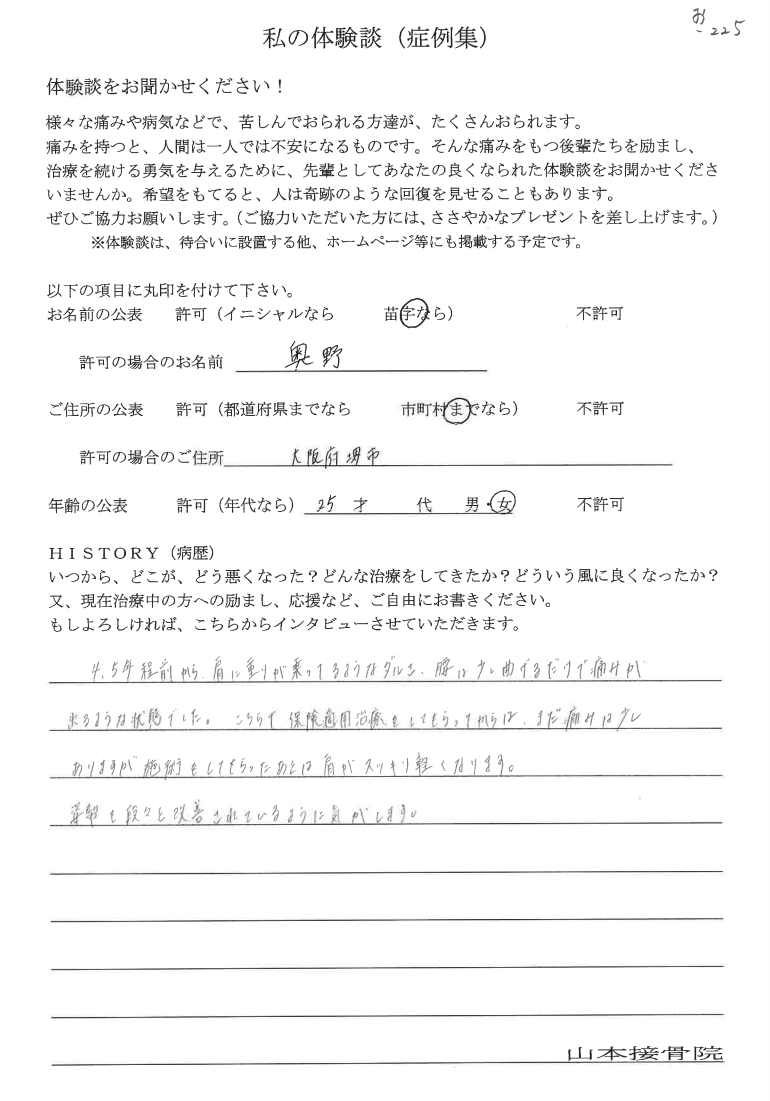 お-225
私の体験談（症例集）
体験談をお聞かせください！
様々な痛みや病気などで、苦しんでおられる方達が、たくさんおられます。
痛みを持つと、人間は一人では不安になるものです。そんな痛みをもつ後輩たちを励まし、
治療を続ける勇気を与えるために、先輩としてあなたの良くなられた体験談をお聞かせくださ
いませんか。希望をもてると、人は奇跡のような回復を見せることもあります。
ぜひご協力お願いします。（ご協力いただいた方には、ささやかなプレゼントを差し上げます。）
※体験談は、待合いに設置する他、ホームページ等にも掲載する予定です。
以下の項目に丸印を付けて下さい。
お名前の公表　許可（イニシャルなら　苗字なら）　不許可
許可の場合のお名前　奥野
ご住所の公表　許可（都道府県までなら　市町村までなら）　不許可
許可の場合のご住所　大阪府堺市
年齢の公表　許可（年代なら）　25 才　代　男・女　不許可
ＨＩＳＴＯＲＹ（病歴）
いつから、どこが、どう悪くなった？どんな治療をしてきたか？どういう風に良くなったか？
又、現在治療中の方への励まし、応援など、ご自由にお書きください。
もしよろしければ、こちらからインタビューさせていただきます。
4、5年程前から、肩に重りが乗ってるようなダルさ、腰は少し曲げるだけで痛みが
出るような状態でした。こちらで保険適用治療をしてもらってからは、まだ痛みは少し
ありますが施術をしてもらったあとは肩がスッキリ軽くなります。
姿勢も段々と改善されているように気がします。
山本接骨院